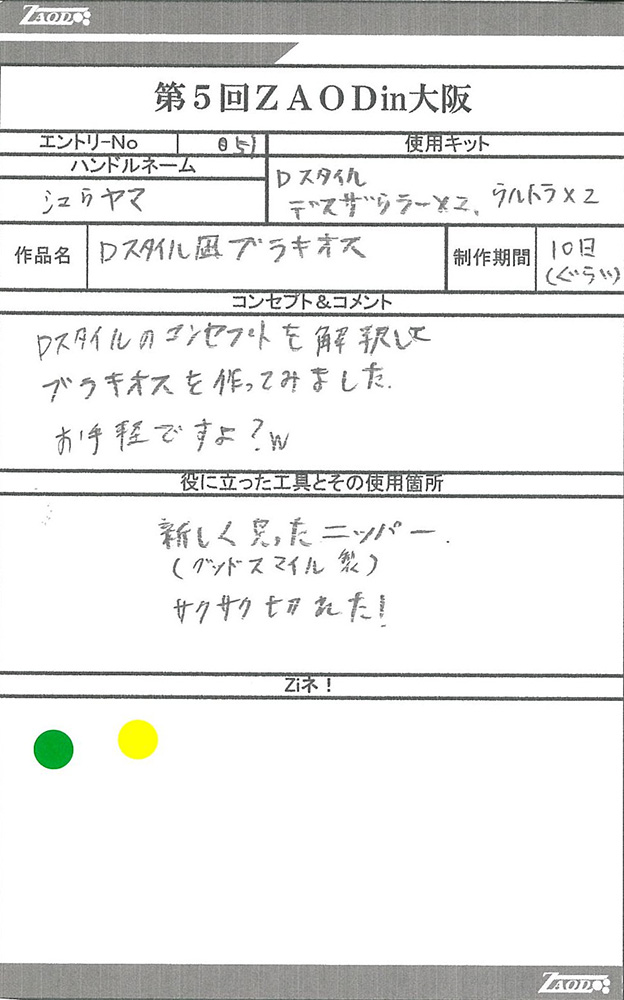 ZAOD
第5回ZAODin大阪
エントリーNo 051
使用キット
ハンドルネーム
シュウヤマ
Dスタイル
デスザウラー×2、ウルトラ×2
作品名
Dスタイル風ブラキオス
制作期間
10日
(ぐらい)
コンセプト&コメント
Dスタイルのコンセプトを解釈して
ブラキオスを作ってみました.
お手軽ですよ?w
役に立った工具とその使用箇所
新しく買ったニッパー.
(グッドスマイル製)
サクサク切れた!
Ziネ!
ZAOD